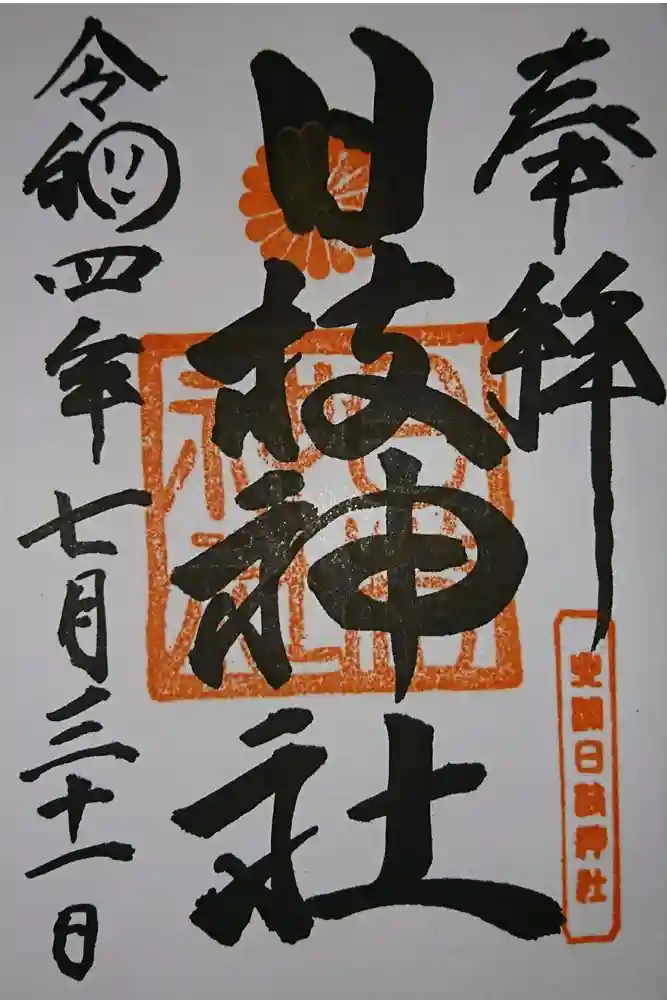 奉拝
日枝神社
令和四年七月三十一日
日枝神社